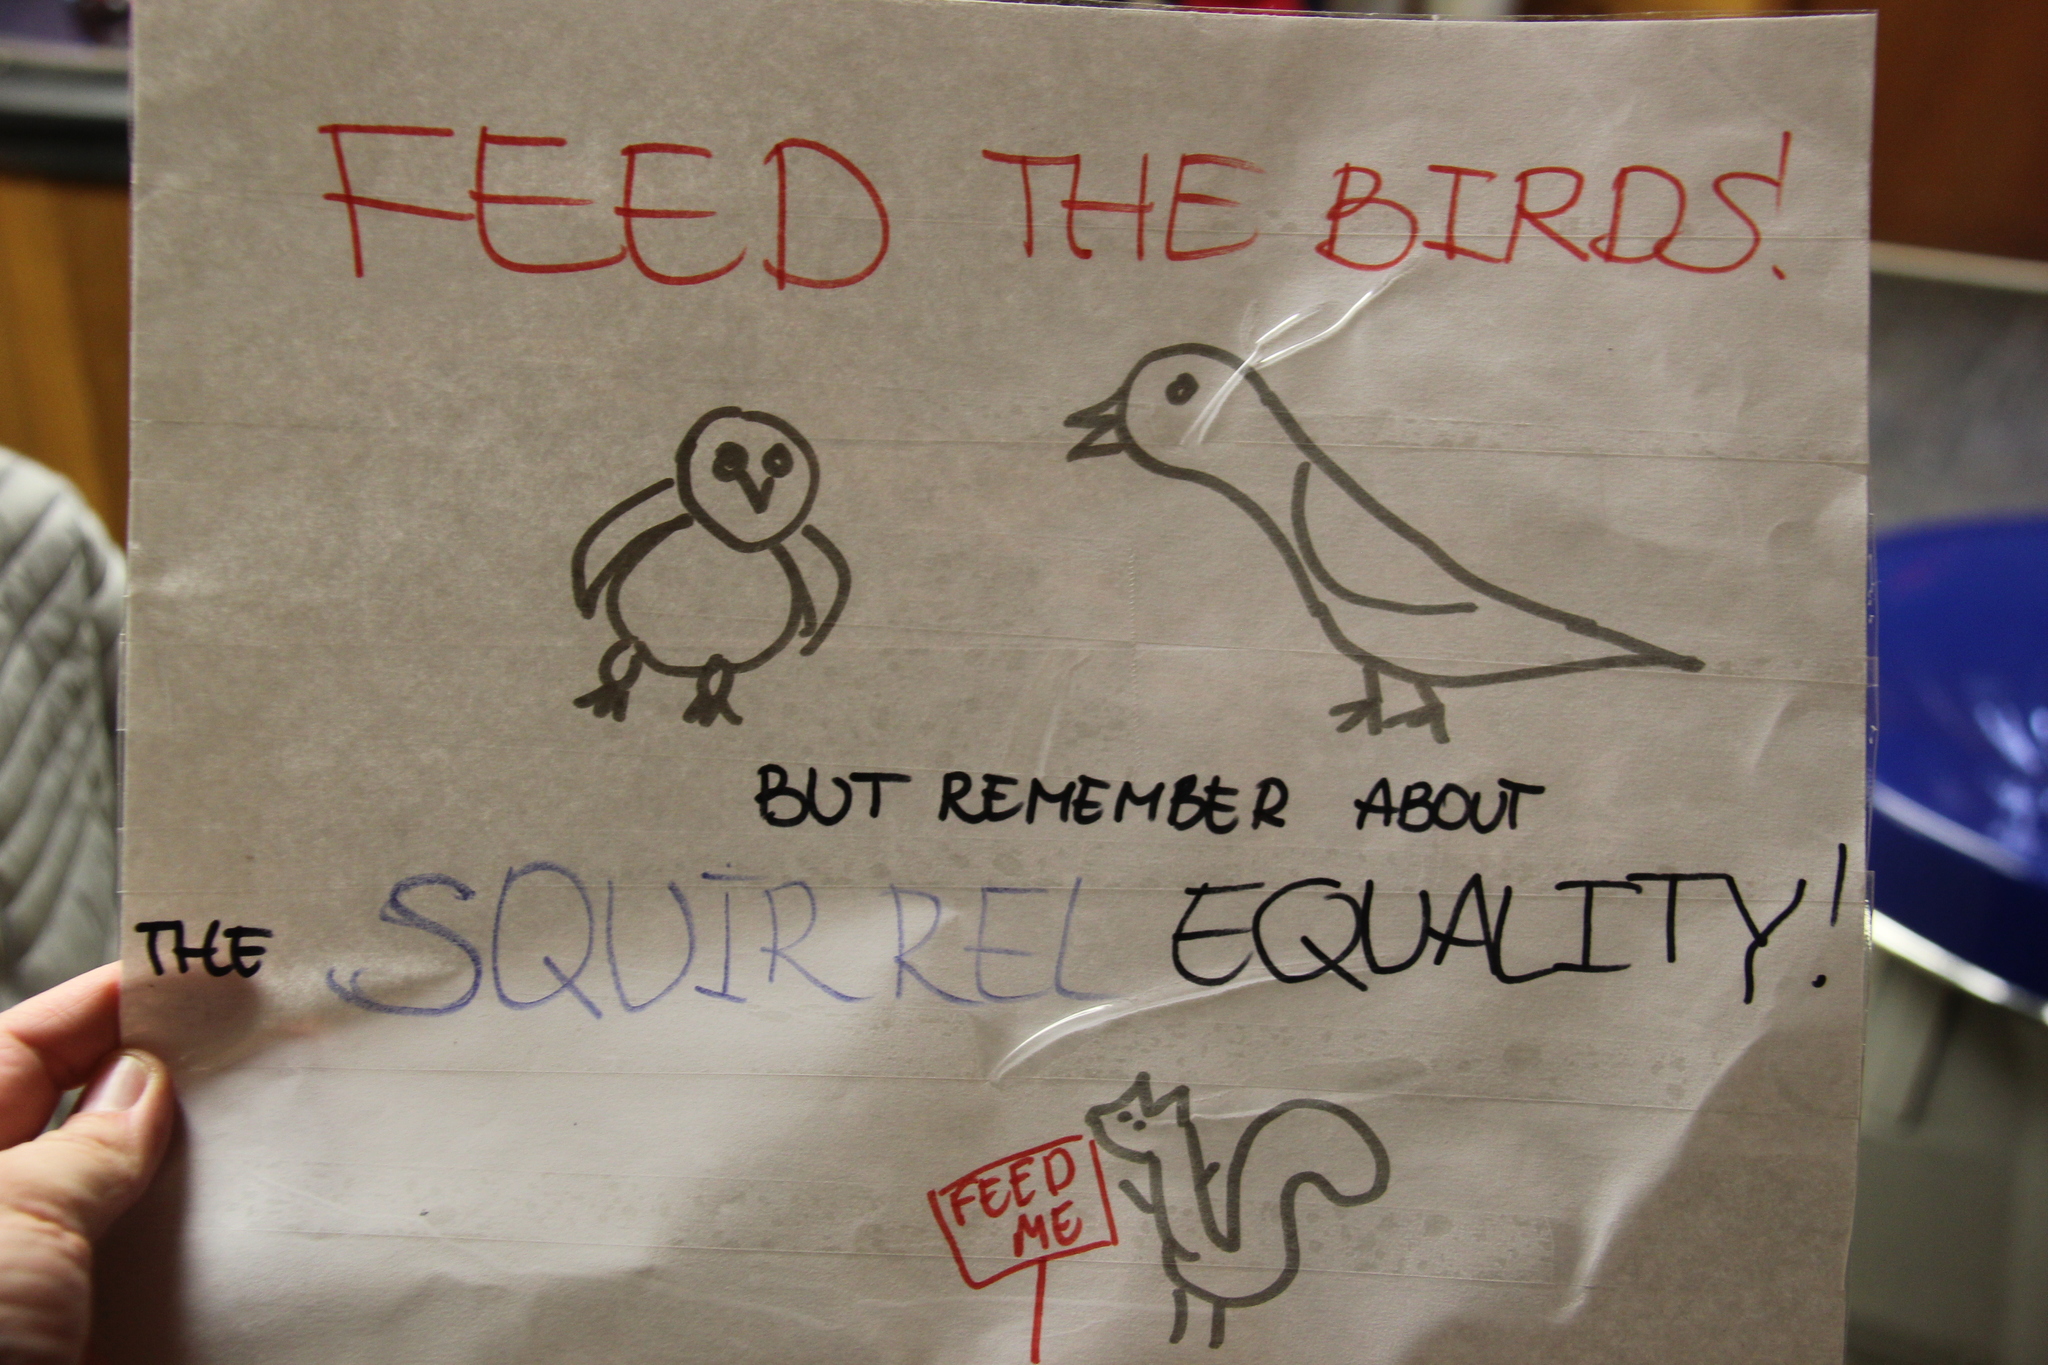 FEED THE BIRDS!
BUT REMEMBER ABOUT
THE SQUIRREL EQUALITY!
FEED
ME